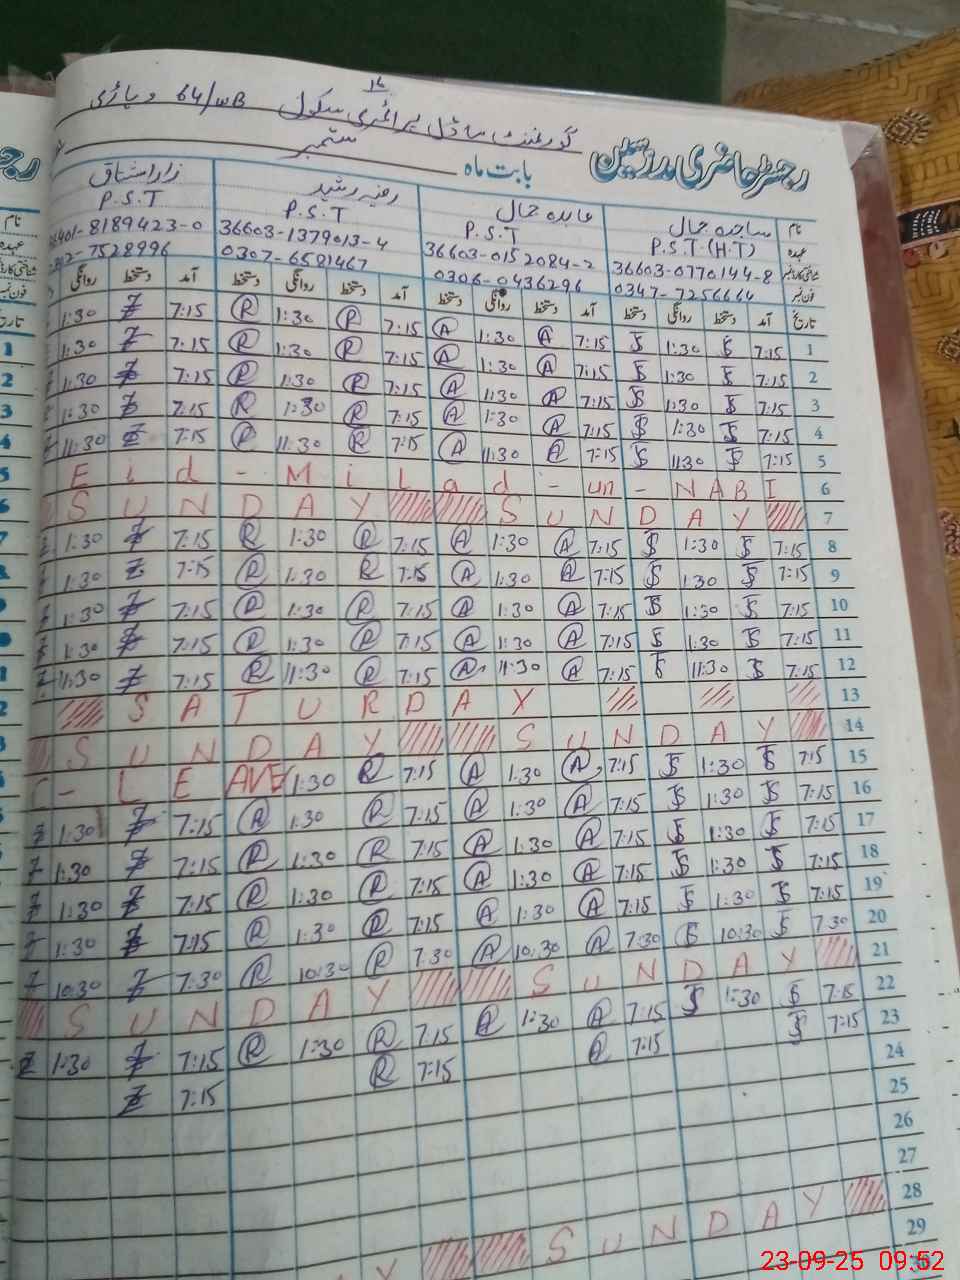 گورنمنٹ ماڈل پرائمری سکول 64/WB وہاڑی
رجسٹر حاضری مدرسین بابت ماہ ستمبر
نام ساجدہ جمال عابدہ جمال رضیہ رشید زارا اشتاق
عہدہ P.S.T (H.T) P.S.T P.S.T P.S.T
36603-0770144-8 36603-0152084-2 36603-1379013-4 401-8189423-0
فون نمبر 0347-7256664 0306-0436296 0307-6581467 7528996
تاریخ آمد دستخط روانگی دستخط آمد دستخط روانگی دستخط آمد دستخط روانگی دستخط آمد دستخط روانگی
1 7:15 S 1:30 S 7:15 A 1:30 A 7:15 R 1:30 R 7:15 Z 1:30
2 7:15 S 1:30 S 7:15 A 1:30 A 7:15 R 1:30 R 7:15 Z 1:30
3 7:15 S 1:30 S 7:15 A 1:30 A 7:15 R 1:30 R 7:15 Z 1:30
4 7:15 S 1:30 S 7:15 A 1:30 A 7:15 R 1:30 R 7:15 Z 1:30
5 7:15 S 11:30 S 7:15 A 11:30 A 7:15 R 11:30 R 7:15 Z 11:30
Eid - MiLad - un - NABI 6
SUNDAY SUNDAY 7
8 7:15 S 1:30 S 7:15 A 1:30 A 7:15 R 1:30 R 7:15 Z 1:30 Z
9 7:15 S 1:30 S 7:15 A 1:30 A 7:15 R 1:30 R 7:15 Z 1:30 Z
10 7:15 S 1:30 S 7:15 A 1:30 A 7:15 R 1:30 R 7:15 Z 1:30 Z
11 7:15 S 1:30 S 7:15 A 1:30 A 7:15 R 1:30 R 7:15 Z 1:30 Z
12 7:15 S 11:30 S 7:15 A 11:30 A 7:15 R 11:30 R 7:15 Z 11:30 Z
SATURDAY 13
SUNDAY SUNDAY 14
15 7:15 S 1:30 S 7:15 A 1:30 A 7:15 R 1:30 C - LEAVE
16 7:15 S 1:30 S 7:15 A 1:30 A 7:15 R 1:30 R 7:15 Z 1:30 Z
17 7:15 S 1:30 S 7:15 A 1:30 A 7:15 R 1:30 R 7:15 Z 1:30 Z
18 7:15 S 1:30 S 7:15 A 1:30 A 7:15 R 1:30 R 7:15 Z 1:30 Z
19 7:15 S 1:30 S 7:15 A 1:30 A 7:15 R 1:30 R 7:15 Z 1:30 Z
20 7:30 S 10:30 S 7:30 A 10:30 A 7:30 R 10:30 R 7:30 Z 10:30 Z
SUNDAY SUNDAY 21
22 7:15 S 1:30 S 7:15 A 1:30 A 7:15 R 1:30 R 7:15 Z 1:30 Z
23 7:15 S 7:15 A 7:15 R 7:15 Z
24
25
26
27
SUNDAY 28
29
30
23-09-25 09:52